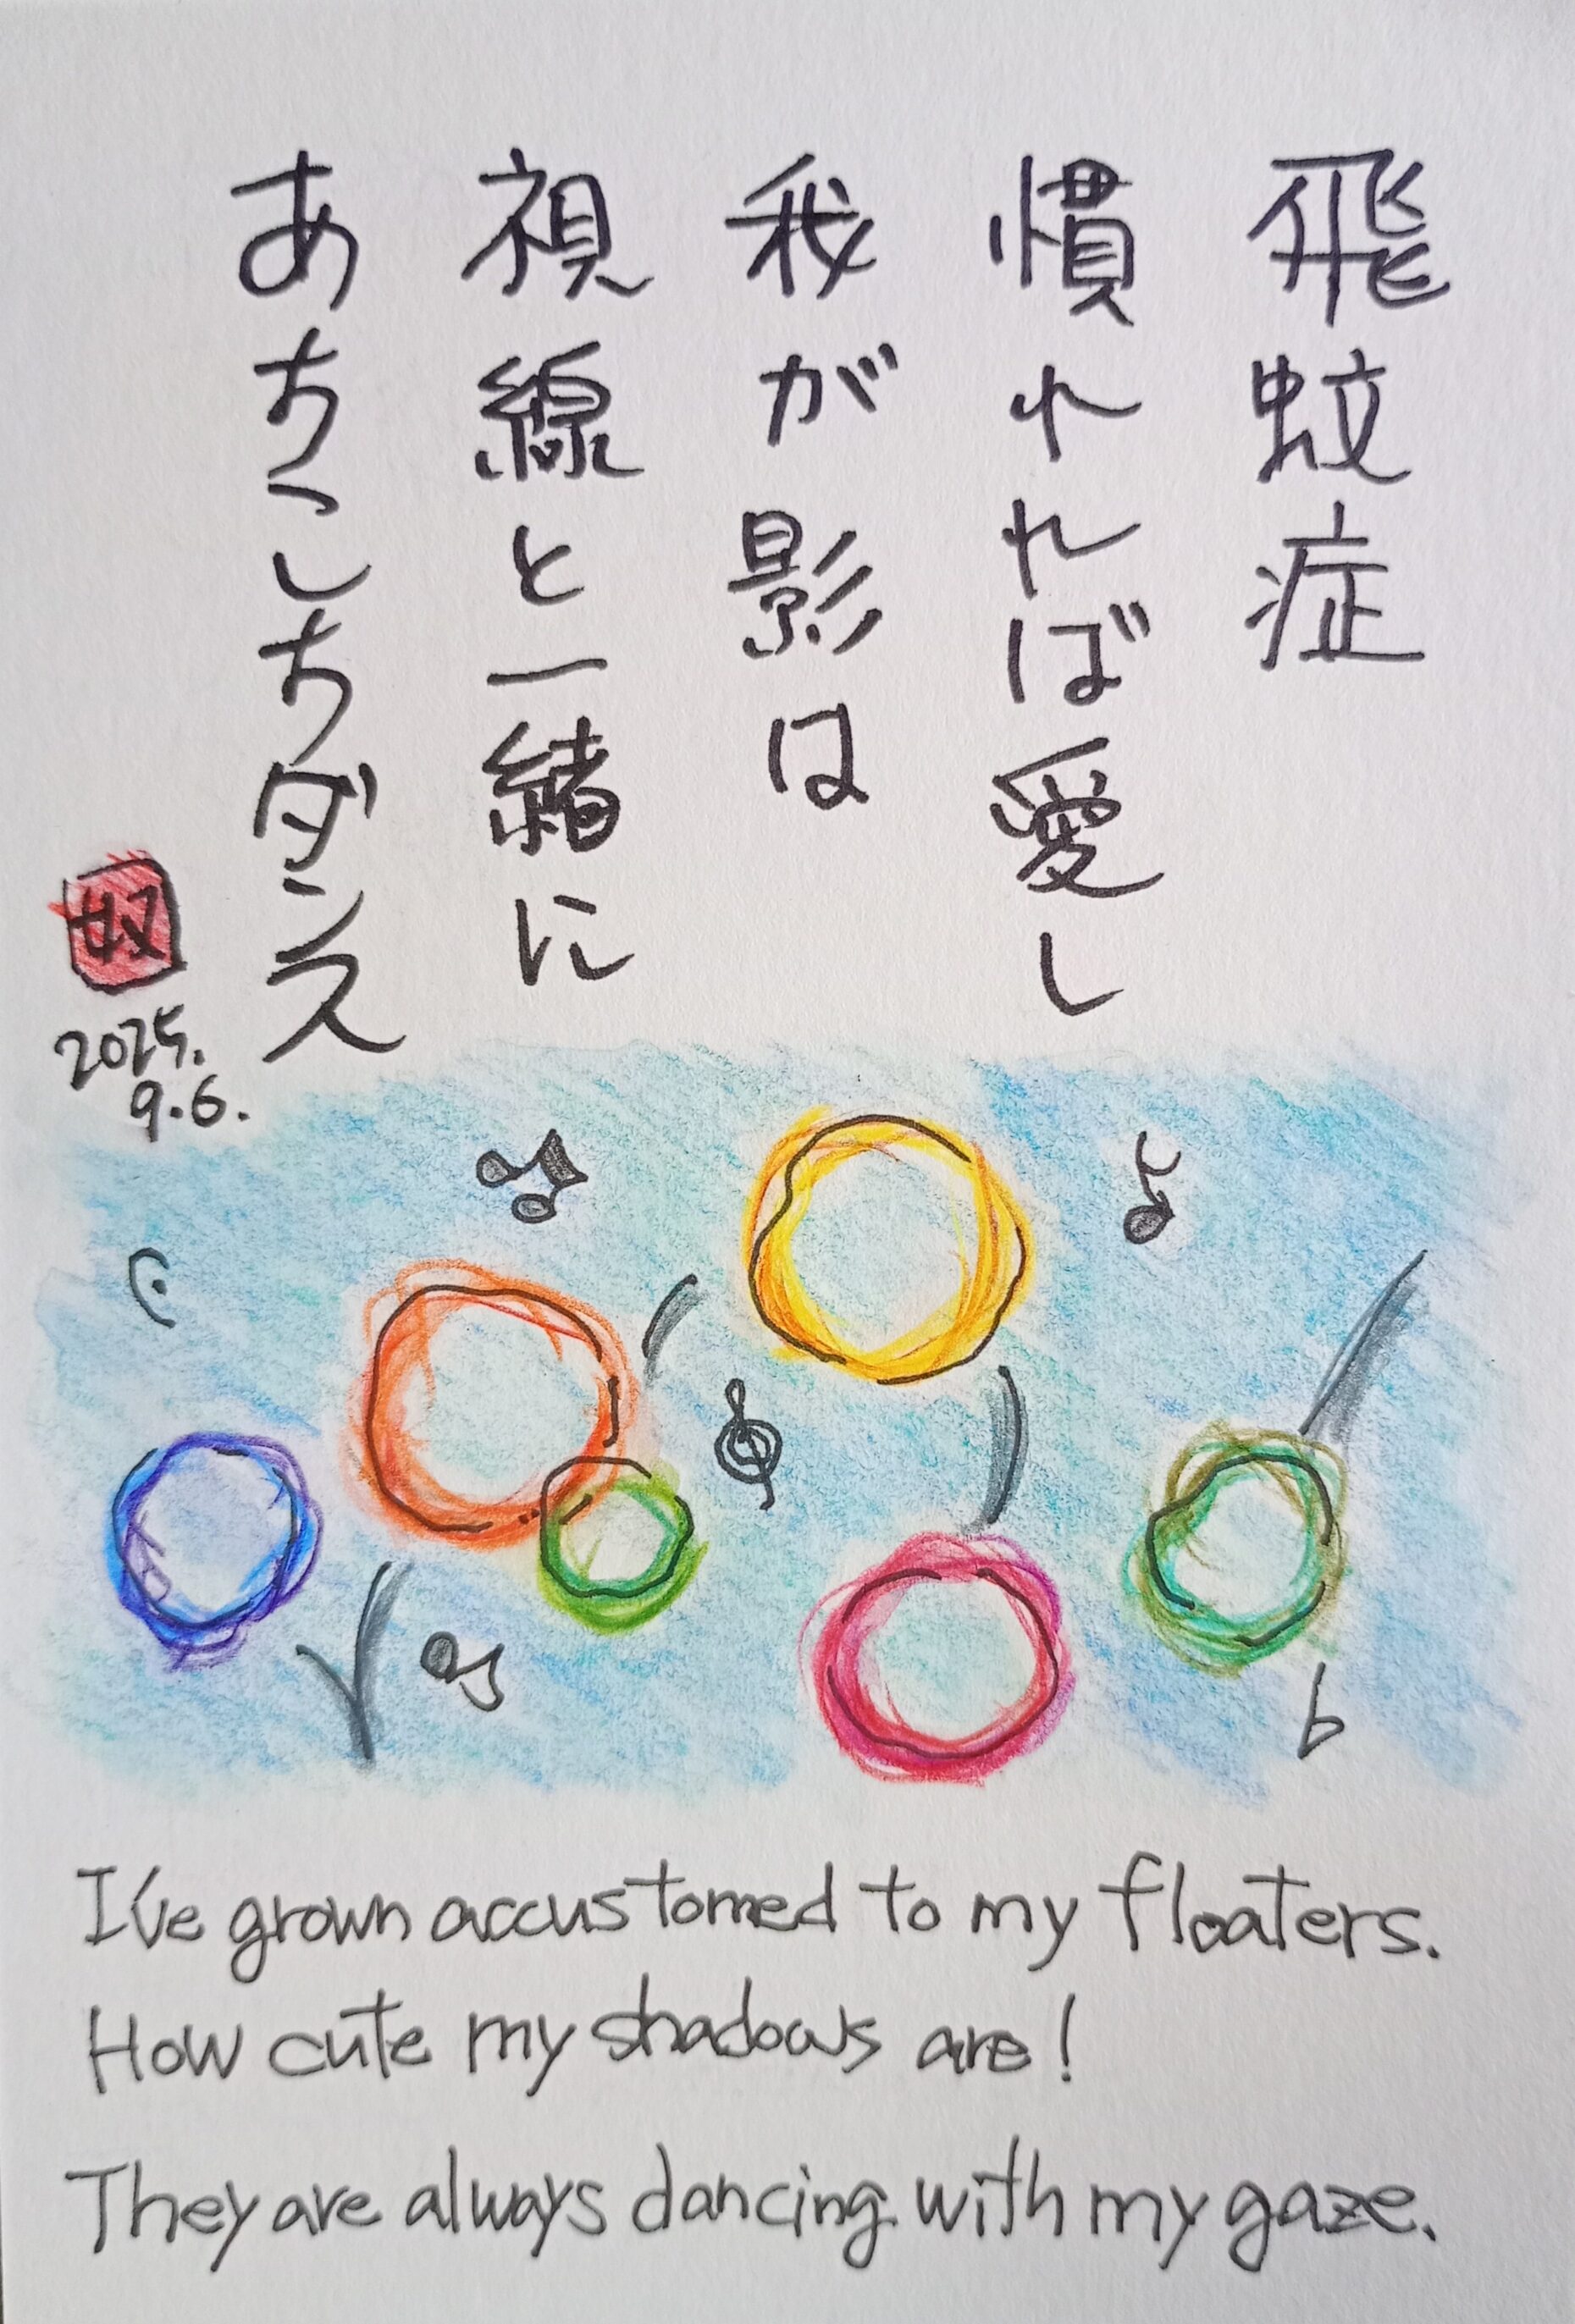 飛蚊症
慣れれば愛し
我が影は
視線と一緒に
あちこちダンス
奴
2025.
9.6.
I've grown accustomed to my floaters.
How cute my shadows are!
They are always dancing with my gaze.